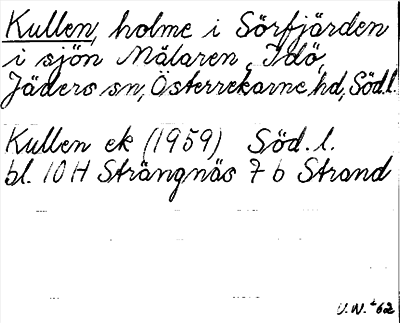 Kullen, holme i Sörfjärden
i sjön Mälaren, Idö,
Jäders sn, Österrekarne hd, Södl.
Kullen ek (1959) Söd. l.
bl. 10 H Strängnäs 7 b Strand
U.W. 62